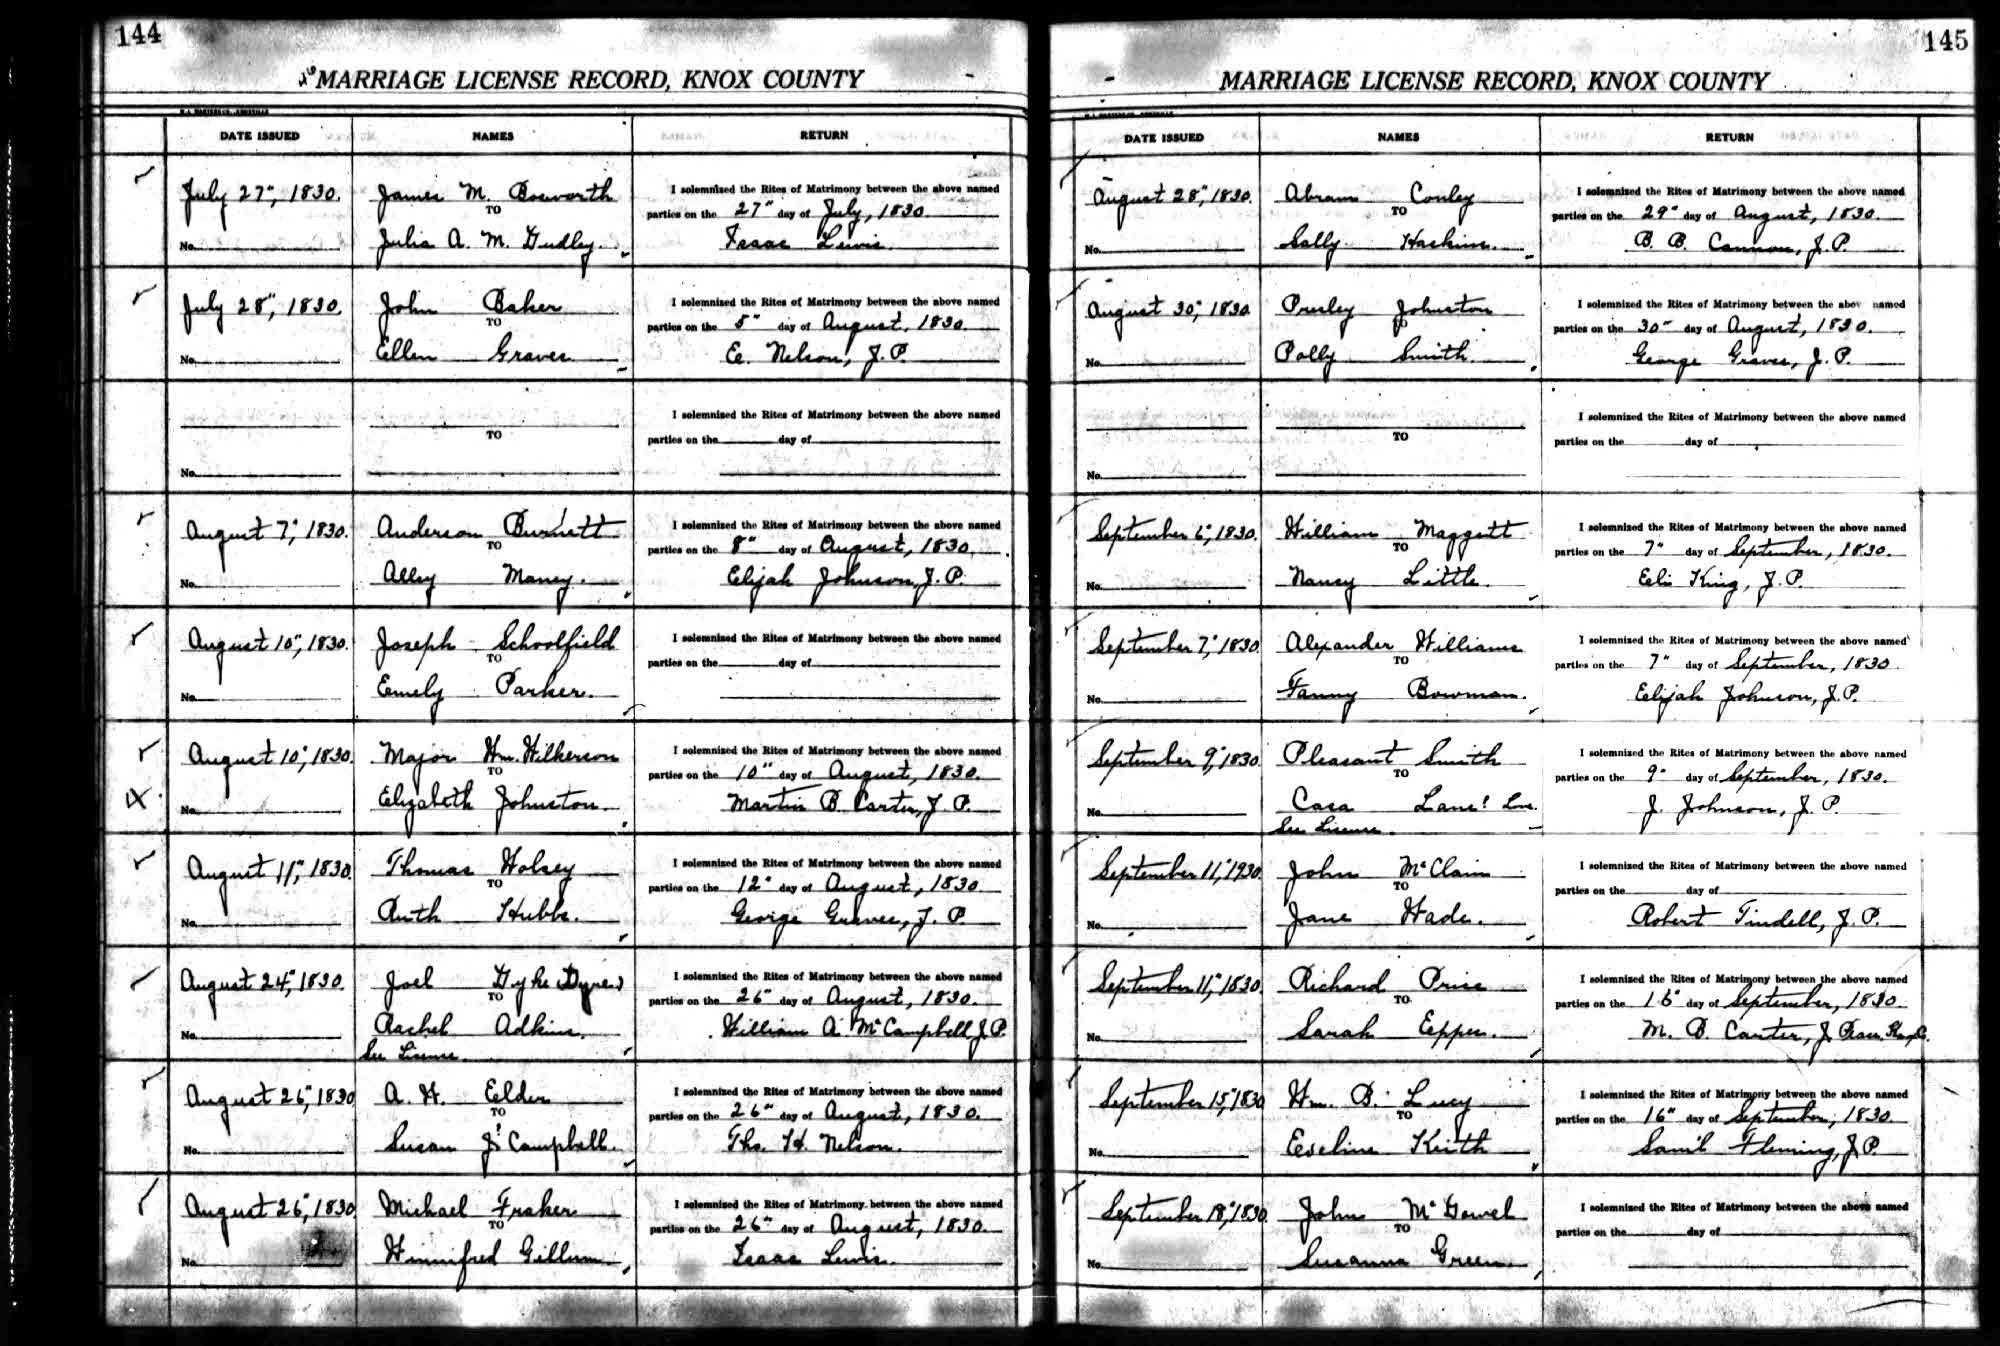 144
MARRIAGE LICENSE RECORD, KNOX COUNTY
DATE ISSUED NAMES RETURN
July 27", 1830. James M. Bosworth I solemnized the Rites of Matrimony between the above named
TO parties on the 27" day of July, 1830.
No. Julia A. M. Dudley. Isaac Lewis.
July 28", 1830. John Baker I solemnized the Rites of Matrimony between the above named
TO parties on the 5" day of August, 1830.
No. Ellen Graves E. Nelson, J.P.
I solemnized the Rites of Matrimony between the above named
TO parties on the day of
No.
August 7", 1830. Anderson Burnett I solemnized the Rites of Matrimony between the above named
TO parties on the 8" day of August, 1830.
No. Alley Maney. Elijah Johnson, J.P.
August 10", 1830. Joseph Schoolfield I solemnized the Rites of Matrimony between the above named
TO parties on the day of
No. Emely Parker.
August 10", 1830. Major Wm. Wilkerson I solemnized the Rites of Matrimony between the above named
TO parties on the 10" day of August, 1830.
No. Elizabeth Johnston. Martin B. Carter, J.P.
August 11", 1830. Thomas Wolsey I solemnized the Rites of Matrimony between the above named
TO parties on the 12" day of August, 1830.
No. Ruth Hubbs. George Graves, J.P.
August 24", 1830. Joel Dyke (Dyre) I solemnized the Rites of Matrimony between the above named
TO parties on the 26" day of August, 1830.
No. Rachel Adkins. William A. McCampbell, J.P.
See License.
August 26", 1830 A. W. Elder I solemnized the Rites of Matrimony between the above named
TO parties on the 26" day of August, 1830.
No. Susan J. Campbell. Ths. H. Nelson.
August 26", 1830 Michael Fraker I solemnized the Rites of Matrimony between the above named
TO parties on the 26" day of August, 1830.
No. Winnifred Gillum Isaac Lewis.
145
MARRIAGE LICENSE RECORD, KNOX COUNTY
DATE ISSUED NAMES RETURN
August 28", 1830. Abram Conley I solemnized the Rites of Matrimony between the above named
TO parties on the 29" day of August, 1830.
No. Sally Haskins. B. B. Cannon, J.P.
August 30", 1830. Presley Johnston I solemnized the Rites of Matrimony between the above named
TO parties on the 30" day of August, 1830.
No. Polly Smith. George Graves, J.P.
I solemnized the Rites of Matrimony between the above named
TO parties on the day of
No.
September 6", 1830. William Maggett I solemnized the Rites of Matrimony between the above named
TO parties on the 7" day of September, 1830.
No. Nancy Little. Eli King, J.P.
September 7", 1830. Alexander Williams I solemnized the Rites of Matrimony between the above named
TO parties on the 7" day of September, 1830
No. Fanny Bowman. Elijah Johnson, J.P.
September 9", 1830. Pleasant Smith I solemnized the Rites of Matrimony between the above named
TO parties on the 9" day of September, 1830.
No. Casa Lane! J. Johnson, J.P.
See License.
September 11", 1930. John McClain I solemnized the Rites of Matrimony between the above named
TO parties on the day of
No. Jane Wade. Robert Tindell, J.P.
September 11", 1830. Richard Price I solemnized the Rites of Matrimony between the above named
TO parties on the 16" day of September, 1830
No. Sarah Eppes. M. B. Carter, J.
September 15", 1830 Wm. B. Lucy I solemnized the Rites of Matrimony between the above named
TO parties on the 16" day of September, 1830.
No. Eveline Keith Saml Fleming, J.P.
September 18", 1830. John McDowel I solemnized the Rites of Matrimony between the above named
TO parties on the day of
No. Susanna Green.